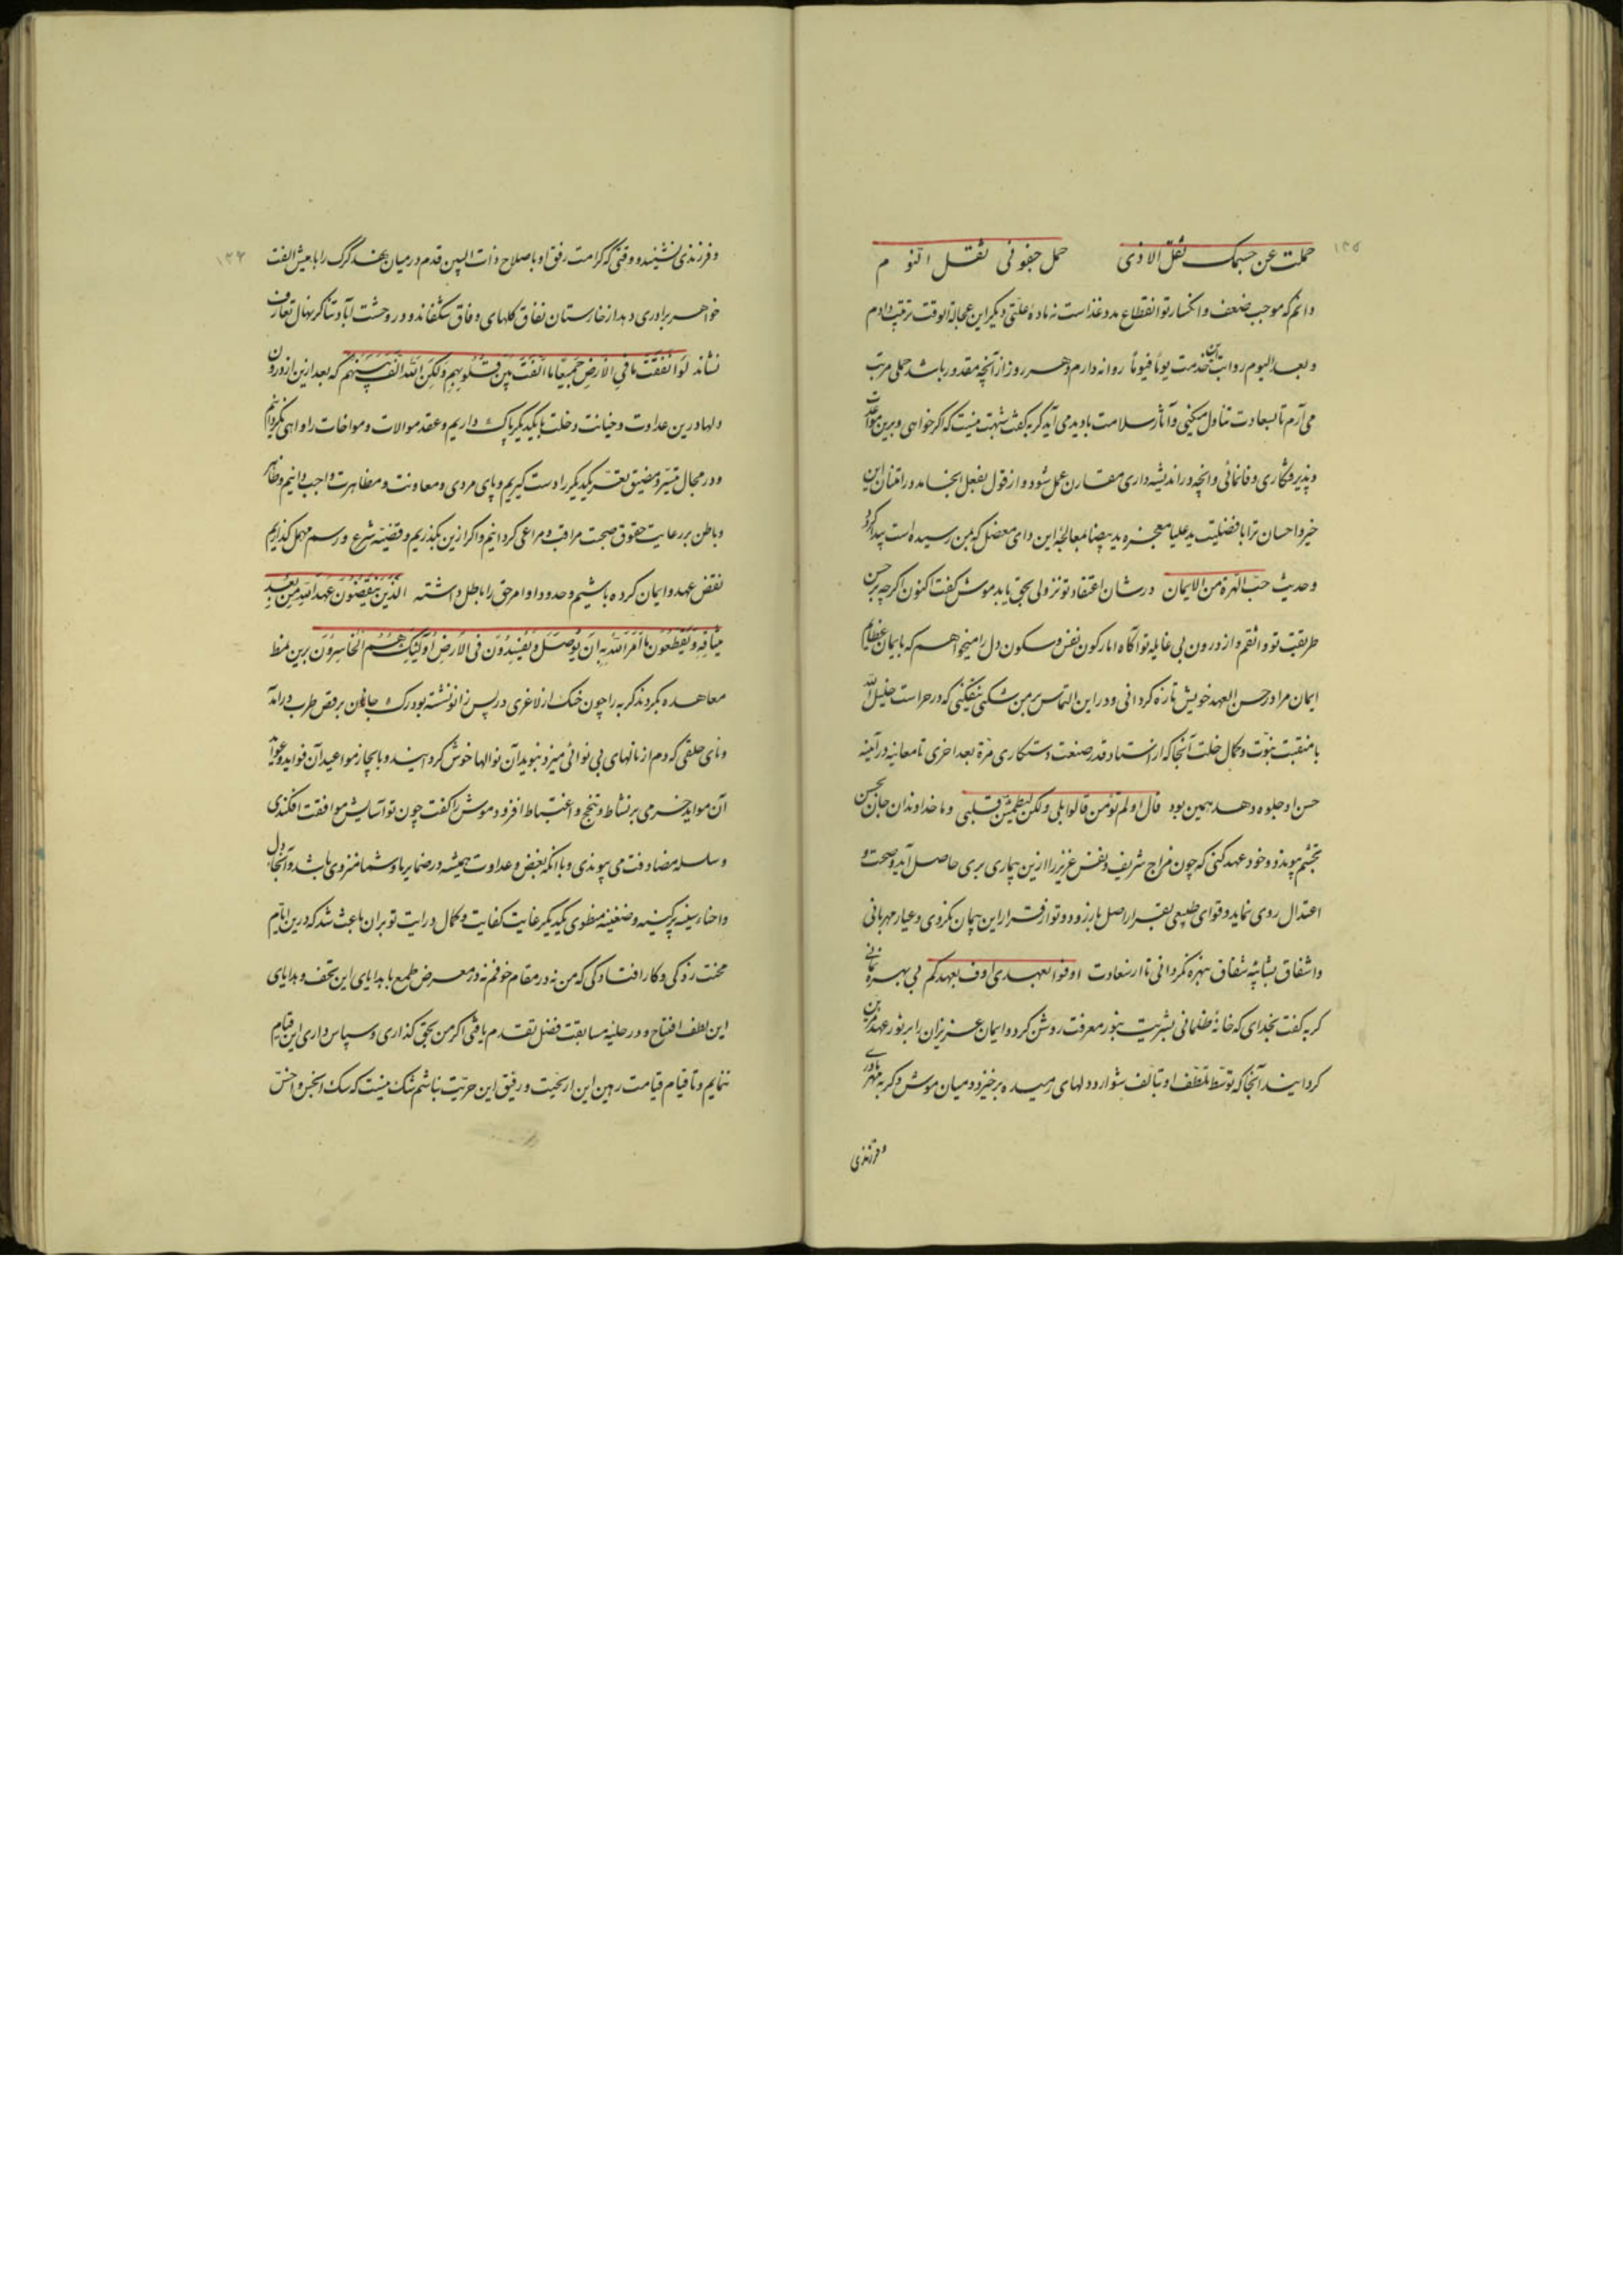 ۱۳۵
حملت عن جسمک ثقل الاذی حمل جفونی ثقل النوم
دانم که موجب ضعف و انکسار تو انقطاع مدد غذاست نه ماده علتی دیگر این عجالة الوقت ترتیب دادم
و بعد الیوم رواتب این خدمت یوماً فیوماً روانه دارم و هر روز از آنچه مقدور باشد حملی مرتب
می آرم تا بسعادت تناول میکنی و آثار سلامت بادید می آید گربه گفت شبهت نیست که اگر خواهی و برین مواعدت
و پذیرفتگاری وفا نمائی و انچه در اندیشه داری مقارن عمل شود و از قول بفعل انجامد در امتنان این
خیر و احسان ترا با فضلیت ید علیا معجزه ید بیضا بمعالجه این دای معضل که بمن رسیده است پیدا گردد
و حدیث حبّ الهرة من الایمان در شان اعتقاد تو نزولی بحق یابد موش گفت اکنون اگرچه بر حسن
طریقت تو واثقم و از درون بی غایله تو آگاه اما رکون نفس و سکون دل را میخواهم که بایمان عظام
ایمان مرا در حسن العهد خویش تازه گردانی و در این التماس بر من شکی نیفکنی که در حراست خلیل الله
با منقبت نبوّت و کمال خلت آنجا که از استاد قدر صنعت دستکاری مرّة بعد اخری تا معاینه در آینه
حسن او جلوه دهد همین بود قال اولم تؤمن قالوا بلی ولکن لیطمئن قلبی و ما خداوندان جان بحسن
بخشم پیوندد و خود عهد کنی که چون مزاج شریف و نفس عزیز را ازین بیماری بری حاصل آید و صحت و
اعتدال روی نماید و قوای طبیعی بقرار اصل باز رود و تو از قرار این پیمان نگردی و عیار مهربانی
و اشفاق بشایبه شفاق نبهره نگردانی تا از سعادت اوفوا بعهدی اوف بعهدکم بی بهره نمانی
گربه گفت بخدای که خانه ظلمانی بشریت بنور معرفت روشن کرد و ایمان عزیزان را بر نور عهد مزین
گردانید آنجا که توسط تلطف او تبالف شوارد دلهای رمیده برخیزد و میان موش و گربه مهر مادری
و فرزندی
۱۳۶
و فرزندی نشیند و وقتی که کرامت رفق او باصلاح ذات البین قدم در میان نهد گرگ را با میش الفت
خواهر برادری دهد از خارستان نفاق گلهای وفاق شکفاند و در وحشت آباد تناکر نهال تعارف
نشاند لَو اَنفَقتَ ما فِی الاَرضِ جَمیعًا ما اَلَّفتَ بَینَ قُلوبِهِم وَلکِنَّ اللهَ اَلَّفَ بَینَهُم که بعد ازین از درون
دلها درین عداوت و خیانت دخلت با یکدیگر پاک داریم و عقد موالات و مواخات را واهی نگردانیم
و در مجال تیسّر و مضیق تعسّر یکدیگر را دست گیریم و پای مردی و معاونت و مظاهرت واجب دانیم و ظاهر
و باطن بر رعایت حقوق صحبت مراقب و مراعی گردانیم و اگر ازین بگذریم و قضیّه شرع و رسم مهمل گذاریم
نقض عهد و ایمان کرده باشیم و حدود اوامر حق را باطل داشته اَلَّذینَ یَنقُضُونَ عَهدَ اللهِ مِن بَعدِ
میثاقِهِ وَیَقطَعُونَ ما اَمَرَ اللهُ بِهِ اَن یُوصَلَ وَیُفسِدُونَ فی الاَرضِ اُولئِکَ هُمُ الخاسِرُونَ برین نمط
معاهده بکردند گربه را چون خنک از لاغری در پس زانو نشته بود رگ جانش برقص طرب درآمد
و نای حلقی که دم از نالهای بی نوائی میزد بنوید آن نوالها خوش گردانید و بانجاز مواعید آن فواید و عواید
آن مواید خرمی بر نشاط و تبجح و اغتباط افزود موش را گفت چون تو آسایش موافقت افکندی
و سلسله مصادقت می پیوندی و با انکه بغض و عداوت همیشه در ضمایر ما و شما منزوی باشد و آنجا دل
و احناء سینه پر کینه و ضغینه منطوی یکدیگر غایت کفایت و کمال درایت تو بران باعث شد که درین ایّام
محنت زدگی و کار افتادگی که من نه در مقام خوفم نه در معرض طمع با بدایای این تحف و هدایای
این لطف افتتاح و در حلیّه مسابقت فضل تقدم یافتی اگر من بحق گذاری و سپاس داری این قیام
ننمایم و تا قیام قیامت رهین این اریحیت و رفیق این حرّیت نباشم شک نیست که سگ انجس و اخسّ